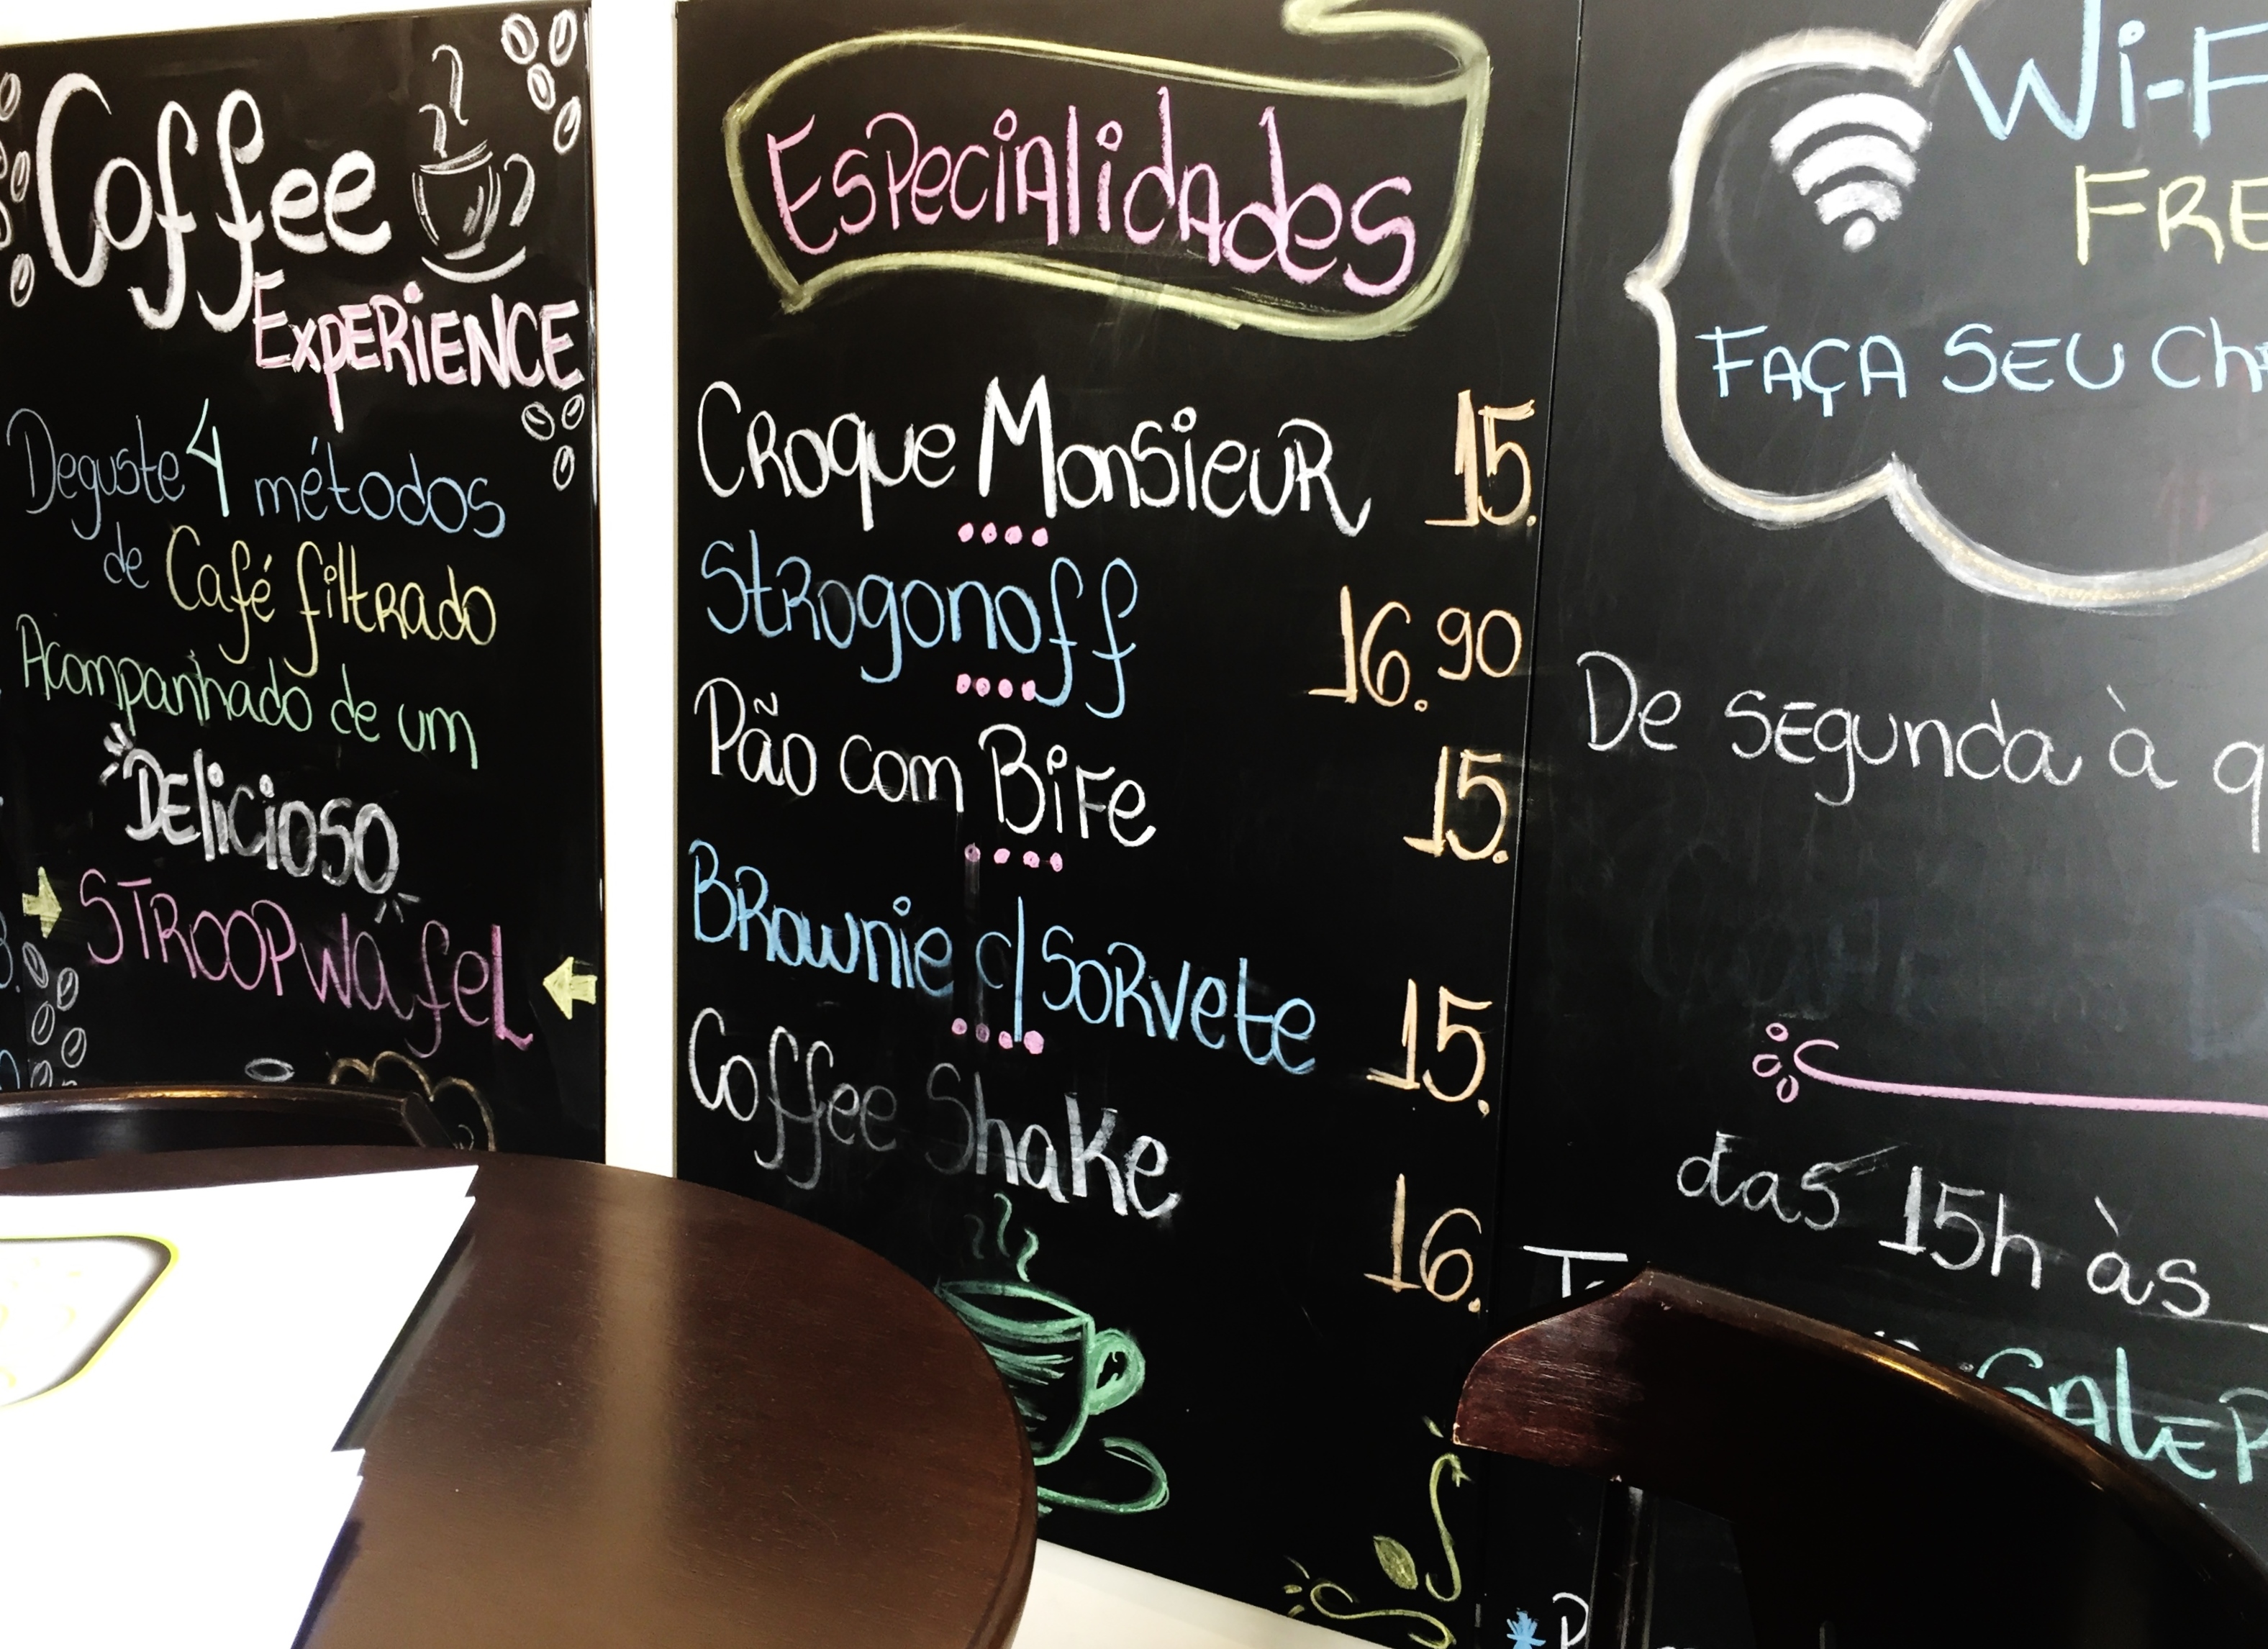 Coffee
Experience
Deguste 4 métodos
de Café filtrado
Acompanhado de um
Delicioso
Stroopwafel
Especialidades
Croque Monsieur 15.
Strogonoff 16.90
Pão com Bife 15.
Brownie c/ Sorvete 15.
Coffee Shake 16.
Wi-F
FRE
Faça seu Ch
De segunda à q
das 15h às